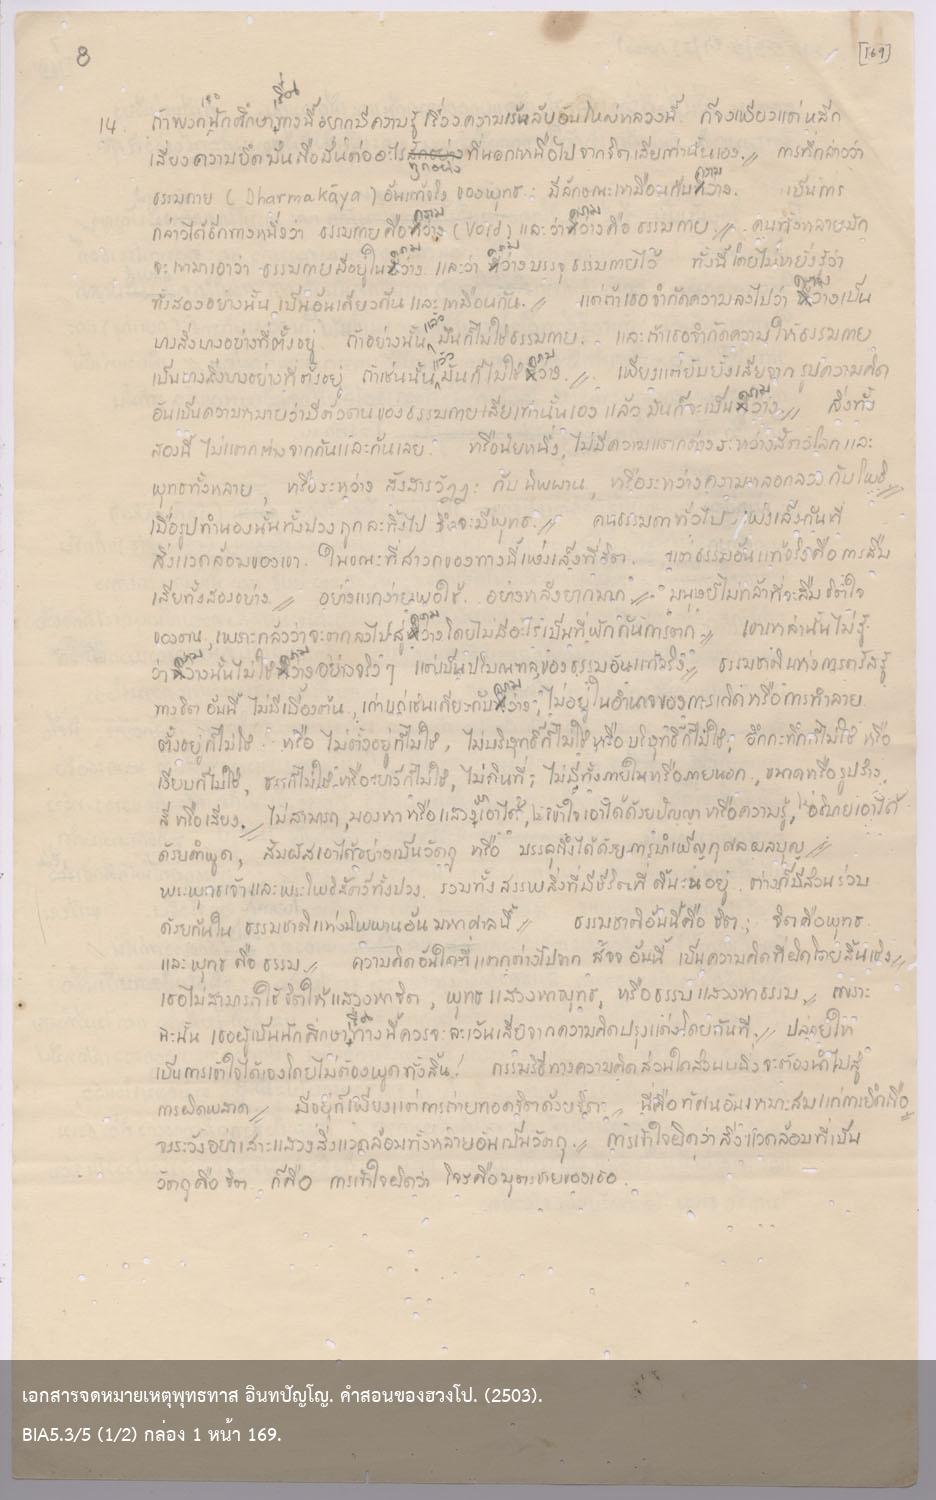 8
[169]
14. ถ้าพวกเธอนักศึกษาเรื่องทางนี้อยากมีความรู้เรื่องความเร้นลับอันใหญ่หลวงนี้ ก็จงเพียงแต่หลีก
เลี่ยงความยึดมั่นถือมั่นต่ออะไรทุกอย่างที่นอกเหนือไปจากจิตเสียเท่านั้นเอง.// การที่กล่าวว่า
ธรรมกาย (Dharmakāya) อันแท้จริง ของพุทธะ มีลักษณะเหมือนกันกับความว่าง. เป็นการ
กล่าวได้อีกทางหนึ่งว่า ธรรมกายคือความว่าง (Void) และว่าความว่างคือ ธรรมกาย.// คนทั้งหลายมัก
จะเหมาเอาว่า ธรรมกายมีอยู่ในความว่าง และว่า ความว่างบรรจุธรรมกายไว้ ทั้งนี้โดยไม่หยั่งรู้ว่า
ทั้งสองอย่างนั้น เป็นอันเดียวกัน และเหมือนกัน.// แต่ถ้าเธอจำกัดความลงไปว่า ความว่างเป็น
บางสิ่งบางอย่างที่ตั้งอยู่ ถ้าอย่างนั้นแล้ว มันก็ไม่ใช่ธรรมกาย. และถ้าเธอจำกัดความให้ธรรมกาย
เป็นบางสิ่งบางอย่างที่ตั้งอยู่ ถ้าเช่นนั้นแล้ว มันก็ไม่ใช่ความว่าง.// เพียงแต่ยับยั้งเสียจาก รูปความคิด
อันเป็นความหมายว่ามีตัวตนของธรรมกายเสียเท่านั้นเอง แล้ว มันก็จะเป็นความว่าง.// สิ่งทั้ง
สองนี้ ไม่แตกต่างจากกันและกันเลย. หรือนัยหนึ่ง, ไม่มีความแตกต่างระหว่างสัตว์โลกและ
พุทธะทั้งหลาย, หรือระหว่าง สังสารวัฏฏะ กับ นิพพาน, หรือระหว่างความหลอกลวง กับ โพธิ.//
เมื่อรูปทำนองนั้นทั้งปวง ถูกละทิ้งไป จึงจะมีพุทธะ.// คนธรรมดาทั่วไป เพ่งเล็งกันที่
สิ่งแวดล้อมของเขา. ในขณะที่สาวกของทางนี้เพ่งเล็งที่จิต. แต่ธรรมอันแท้จริงคือ การลืม
เสียทั้งสองอย่าง // อย่างแรกง่ายพอใช้. อย่างหลังยากมาก // มนุษย์ไม่กล้าที่จะลืม จิตใจ
ของตน, เพราะกลัวว่าจะตกลงไปสู่ความว่างโดยไม่มีอะไรเป็นที่พักกันการตก.// เขาเหล่านั้นไม่รู้
ว่า ความว่างนั้นไม่ใช่ความว่างอย่างจริงๆ แต่เป็นปริมณฑลของธรรมอันแท้จริง // ธรรมชาติแห่งการตรัสรู้
ทางจิต อันนี้ ไม่มีเบื้องต้น, เก่าแก่เช่นเดียวกับความว่าง, ไม่อยู่ในอำนาจของการเกิด หรือการทำลาย.
ตั้งอยู่ก็ไม่ใช่ หรือ ไม่ตั้งอยู่ก็ไม่ใช่, ไม่บริสุทธิ์ก็ไม่ใช่ หรือ บริสุทธิ์ก็ไม่ใช่, อึกกะทึกก็ไม่ใช่ หรือ
เงียบก็ไม่ใช่, ชราก็ไม่ใช่ หรือเยาว์ก็ไม่ใช่, ไม่กินที่; ไม่มีทั้งภายใน หรือภายนอก, ขนาดหรือรูปร่าง,
สี หรือเสียง.// ไม่สามารถ มองหา หรือแสวงเอาได้, เข้าใจเอาได้ด้วยปัญญา หรือความรู้, อธิบายเอาได้
ด้วยคำพูด, สัมผัสเอาได้อย่างเป็นวัตถุ หรือ บรรลุถึงได้ด้วยการบำเพ็ญกุศลผลบุญ //
พระพุทธเจ้าและพระโพธิสัตว์ทั้งปวง. รวมทั้ง สรรพสิ่งที่มีชีวิต ต่างก็มีส่วนร่วม
ด้วยกันใน ธรรมชาติแห่งนิพพานอัน มหาศาลนี้ // ธรรมชาติอันนี้คือ จิต; จิตคือพุทธะ
และพุทธะ คือ ธรรม.// ความคิดอันใดที่แตกต่างไปจาก สัจจะอันนี้ เป็นความคิดที่ผิดโดยสิ้นเชิง//
เธอไม่สามารถใช้จิตให้แสวงหาจิต, พุทธะแสวงหาพุทธะ, หรือธรรมแสวงหาธรรม.// เพราะ
ฉะนั้น เธอผู้เป็นนักศึกษาทางนี้ควรจะละเว้นเสียจากความคิดปรุงแต่งโดยทันที.// ปล่อยให้
เป็นการเข้าใจได้เองโดยไม่ต้องพูดทั้งสิ้น! กรรมวิธีทางความคิดส่วนใดส่วนหนึ่ง จะต้องนำไปสู่
การผิดพลาด // มีอยู่ก็เพียงแต่การถ่ายทอดจิตด้วยจิต // นี่คือทัศนะอันเหมาะสมแก่การยึดถือ
จงระวังอย่าเสาะแสวงสิ่งแวดล้อมทั้งหลายอันเป็นวัตถุ.// การเข้าใจผิดว่า สิ่งแวดล้อมที่เป็น
วัตถุคือ จิต ก็คือ การเข้าใจผิดว่า โจรคือบุตรชายของเธอ.
เอกสารจดหมายเหตุพุทธทาส อินทปัญโญ. คำสอนของฮวงโป. (2503).
BIA5.3/5 (1/2) กล่อง 1 หน้า 169.